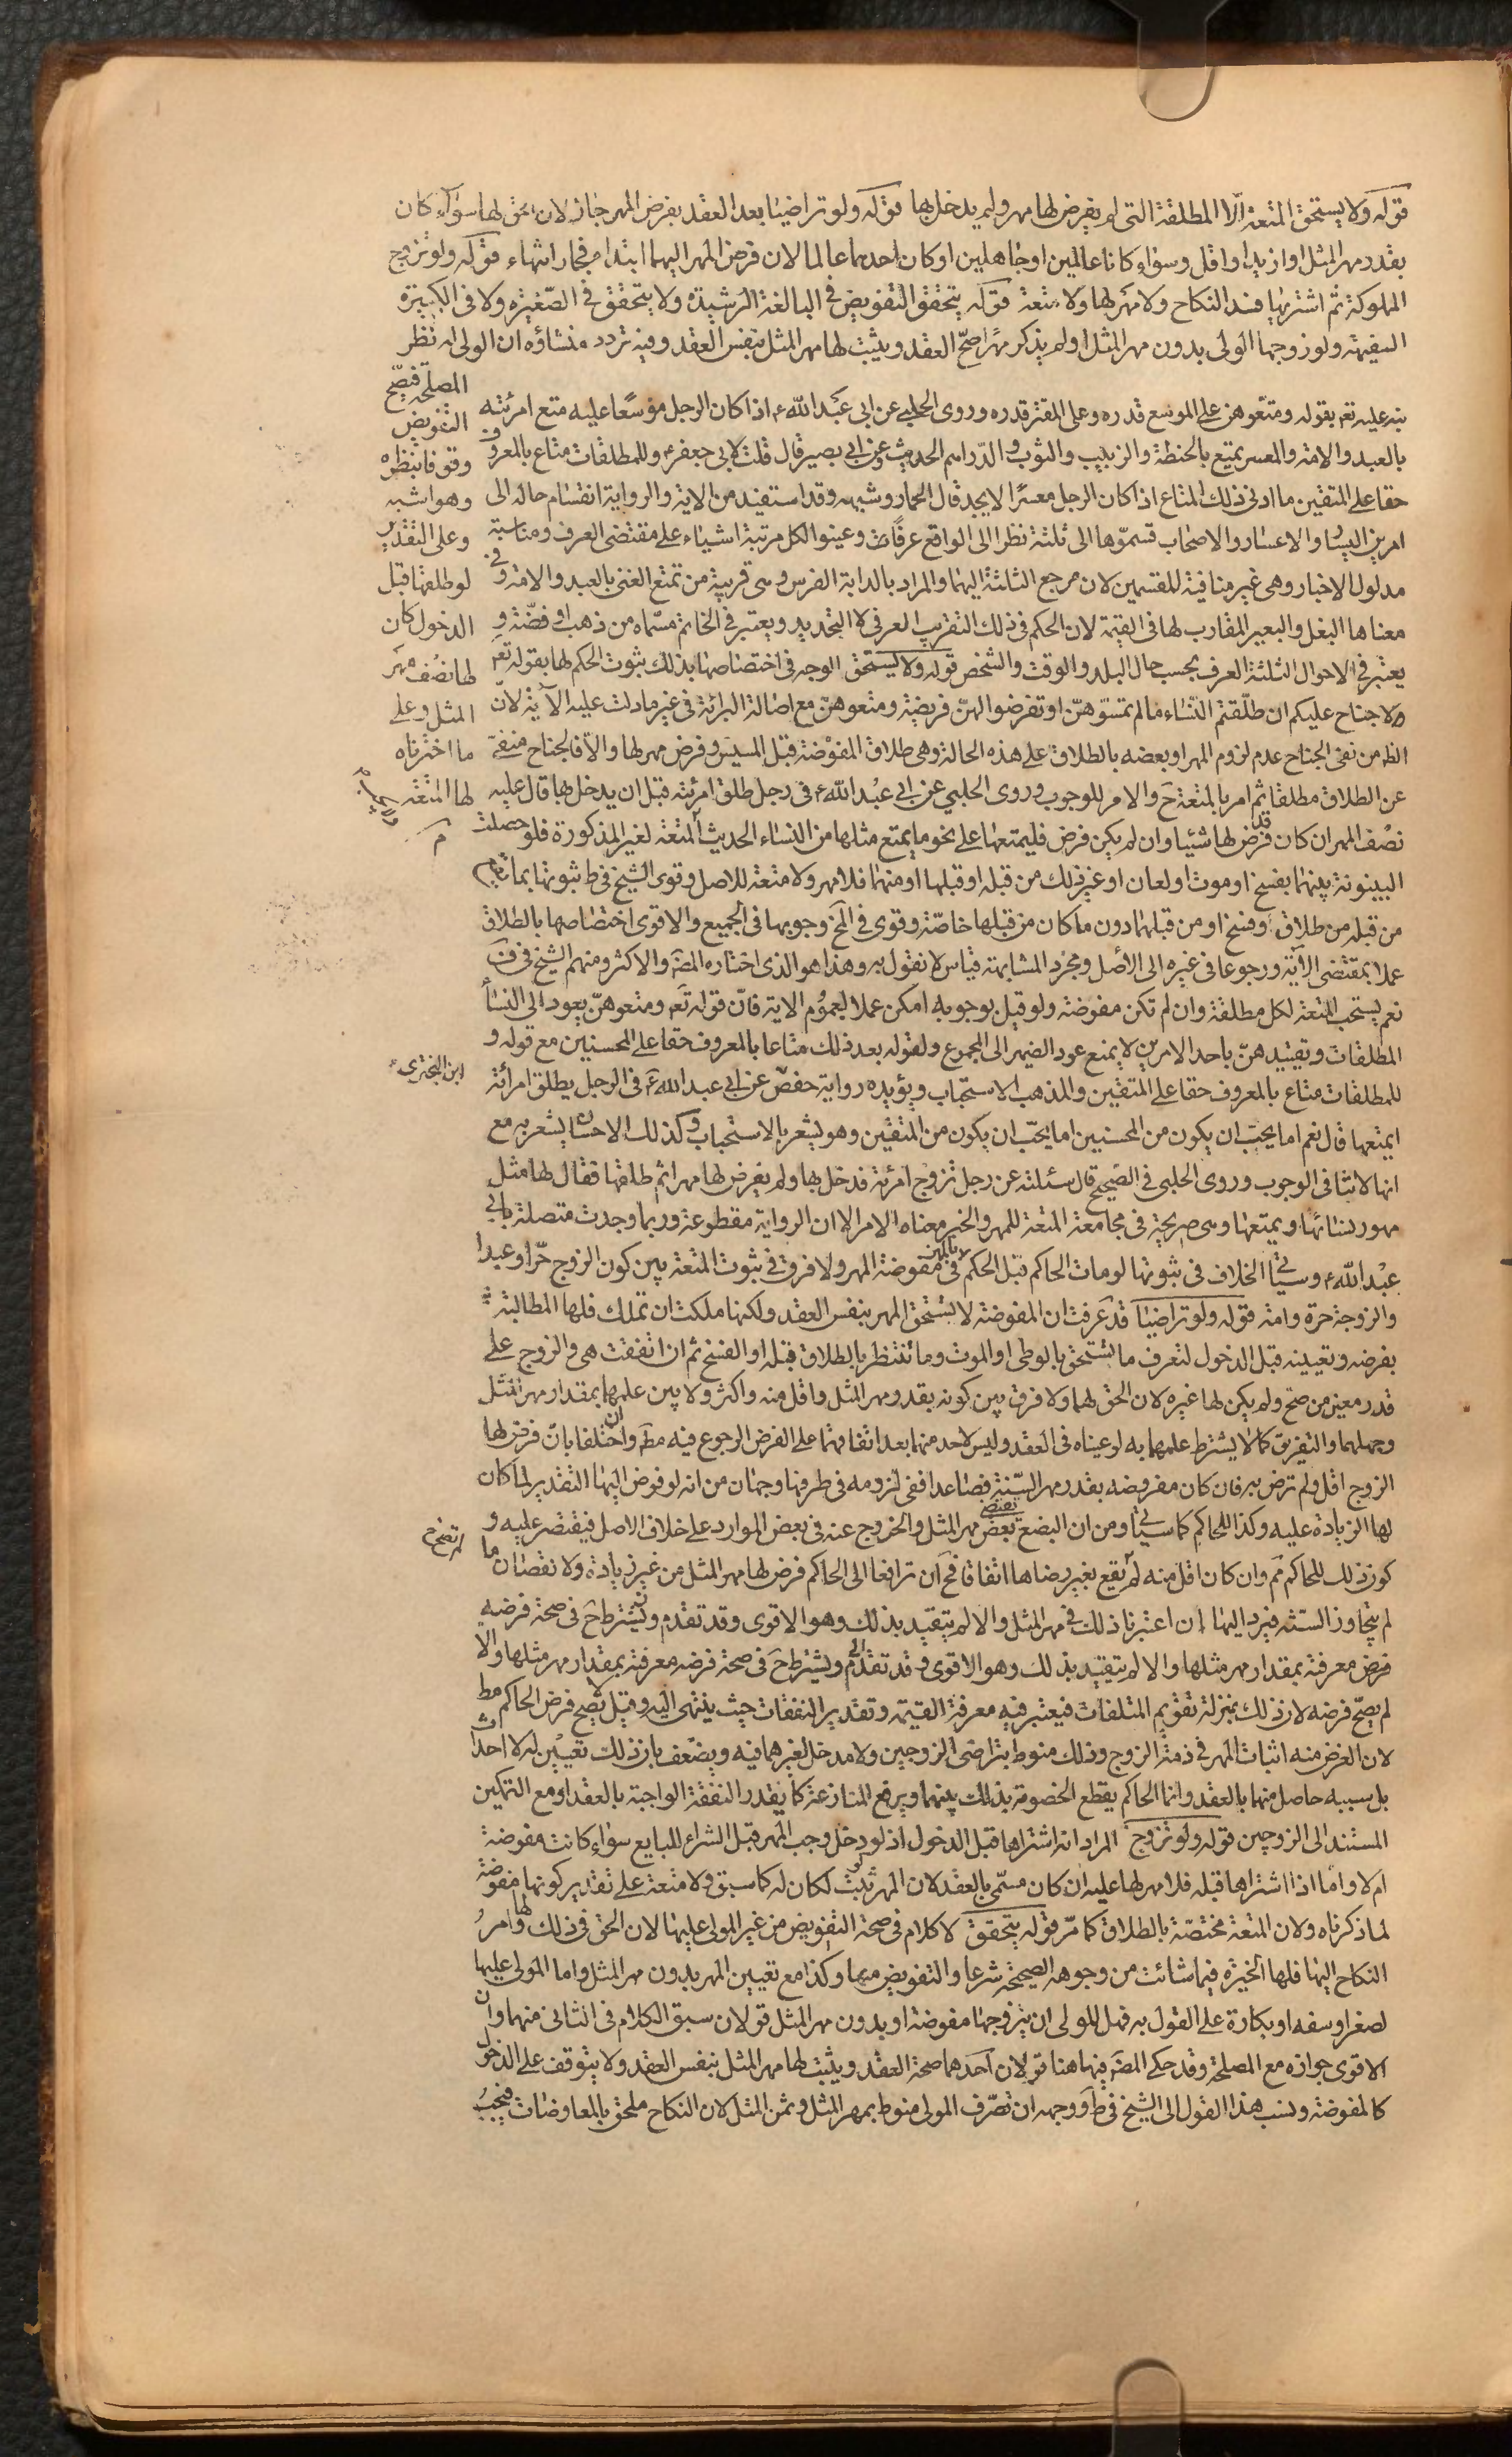 قوله ولا يستحق المتعة الّا المطلقة التى لم يفرض لها مهر ولم يدخل بها قوله ولو تراضيا بعد العقد بفرض المهر جاز لان الحق لهما سوآء كان
بقدر مهر المثل او ازيد او اقل وسوآء كانا عالمين او جاهلين او كان احدهما عالما لان فرض المهر اليهما ابتداء فجاز انتهاء قوله ولو تزوج
المملوكة ثم اشتريها فسد النكاح ولا مهر لها ولا متعة قوله يتحقق التفويض فى البالغة الرشيدة ولا يتحقق فى الصّغيرة ولا فى الكبيرة
السفيهة ولو زوجها الولى بدون مهر المثل او لم يذكر مهرًا صحّ العقد ويثبت لها مهر المثل بنفس العقد وفيه تردد منشاؤه ان الولى له نظر
المصلحة فيصّح
التفويض
وثوقا بنظره
وهو اشبه
وعلى التقدير
لو طلقها قبل
الدخول كان
لها نصف مهر
المثل وعلى
ما اخترناه
لها المتعة
نبه عليه تعم بقوله ومتعوهن على الموسع قدره وعلى المقتر قدره وروى الحلبى عن ابى عبد الله ء اذا كان الرجل موسّعا عليه متع امرئته
بالعبد والامة والمعسر يمتع بالحنطة والزبيب والثوب والدّراهم الحديث وعن ابى بصير قال قلت لابى جعفر ء وللمطلقات متاع بالمعروف
حقا على المتقين ما ادنى ذلك المتاع اذا كان الرجل معسرًا لا يجد قال الخمار وشبهه وقد استفيد من الاية والرواية انقسام حاله الى
امرين اليسار والاعسار والاصحاب قسموّها الى ثلثة نظرا الى الواقع عرفًا وعينوا لكل مرتبة اشياء على مقتضى العرف ومناسبة
مدلول الاخبار وهى غير منافية للقسمين لان مرجع الثلثة اليهما والمراد بالدابة الفرس وهى قريبة من تمتع الغنى بالعبد والامة وفى
معناها البغل والبعير المقارب لها فى القيمة لان الحكم فى ذلك التقريب العرفى لا التحديد ويعتبر فى الخاتم مسمّاه من ذهب او فضّة و
يعتبر فى الاحوال الثلثة العرف بحسب حال البلد والوقت والشخص قوله ولا يستحق الوجه فى اختصاصها بذلك ثبوت الحكم لها بقوله تعم
ولا جناح عليكم ان طلّقتم النّساء مالم تمسّوهنّ او تفرضوا لهنّ فريضة ومتعوهنّ مع اصالة البرائة فى غير ما دلت عليه الآية لانّ
الظ من نفى الجناح عدم لزوم المهر او بعضه بالطلاق على هذه الحالة وهى طلاق المفوّضة قبل المسيس وفرض مهر لها والّا فالجناح منفىّ
عن الطلاق مطلقا ثم امر بالمتعة ح والامر للوجوب وروى الحلبى عن ابى عبد الله ء فى رجل طلق امرئته قبل ان يدخل بها قال عليه
نصف المهر ان كان قد فرض لها شيئا وان لم يكن فرض فليمتعها على نحو ما يمتع مثلها من النساء الحديث المتعة لغير المذكورة فلو حصلت
البينونة بينهما بفسخ او موت او لعان او غير ذلك من قبله او قبلها او منهما فلا مهر ولا متعة للاصل وقوى الشيخ فى ط ثبوتها بما يقع
من قبله من طلاق وفسخ او من قبلهما دون ما كان من قبلها خاصّة وقوى فى المخ وجوبها فى الجميع والاقوى اختصاصها بالطلاق
عملا بمقتضى الآية ورجوعا فى غيره الى الاصل ومجرّد المشابهة قياس لا نقول به وهذا هو الذى اختاره المصَ والاكثر ومنهم الشيخ فى ف
نعم يستحب المتعة لكل مطلقة وان لم تكن مفوضة ولو قيل بوجوبه امكن عملا بعموم الاية فانّ قوله تعَ ومتعوهنّ يعود الى النساء
المطلقات وتقييدهنّ باحد الامرين لا يمنع عود الضمير الى المجموع ولقوله بعد ذلك متاعا بالمعروف حقا على المحسنين مع قوله و
للمطلقات متاع بالمعروف حقا على المتقين والمذهب الاستحباب ويؤيده رواية حفص عن ابى عبد الله ء فى الرجل يطلق امرأئة
ابن البخترى
ايمتعها قال نعم اما يحبّ ان يكون من المحسنين اما يحبّ ان يكون من المتقين وهو يشعر بالاستحباب وكذلك الاحسان يشعر به مع
انها لا تنافى الوجوب وروى الحلبى فى الصّحيح قال سئلته عن رجل تزوج امرئة فدخل بها ولم يفرض لها مهرا ثم طلقها فقال لها مثل
مهور نسائها ويمتعها وهى صريحة فى مجامعة المتعة للمهر والخبر معناه الامر الا ان الرواية مقطوعة وربما وجدت متصلة بابى
عبد الله ء وسياتى الخلاف فى ثبوتها لو مات الحاكم قبل الحكم فى مفوضة المهر ولا فرق فى ثبوت المتعة بين كون الزوج حّرا وعبدا
والزوجة حرة وامة قوله ولو تراضيا قد عرفت ان المفوضة لا تستحق المهر بنفس العقد ولكنها ملكت ان تملك فلها المطالبة
بفرضه وتعيينه قبل الدخول لتعرف ما تستحق بالوطى او الموت وما تنتظر بالطلاق قبله او الفسخ ثم ان اتفقت هى والزوج على
قدر معين من صحّ ولم يكن لها غيره لان الحق لهما ولا فرق بين كونه بقدر مهر المثل واقل منه واكثر ولا بين علمهما بمقدار مهر المثل
وجهلهما والتفريق كما لا يشترط علمهما به لو عيناه فى العقد وليس لاحد منهما بعد اتفاقهما على الفرض الرجوع فيه مطَ وان اختلفا بانّ فرض لها
الزوج اقل ولم ترض به فان كان مفروضه بقدر مهر السّنة فصاعدا ففى لزومه فى طرفها وجهان من انه لو فوض اليها التقدير لما كان
لها الزيادة عليه وكذا للحاكم كما سياتى ومن ان البضع يقتضى مهر المثل والخروج عنه فى بعض الموارد على خلاف الاصل فيقتصر عليه و
كون ذلك للحاكم مَم وان كان اقل منه لم يقع بغير رضاها اتفاقا فح ان ترافعا الى الحاكم فرض لها مهر المثل من غير زيادة ولا نقصان ما
لم يتجاوز السنّة فيرد اليها ان اعتبرنا ذلك فى مهر المثل والا لم يتقيد بذلك وهو الاقوى وقد تقدم ويشترط ح فى صحة فرضه
فرض معرفة بمقدار مهر مثلها والا لم يتقيد بذلك وهو الاقوى وقد تقدّم ويشترط ح فى صحة فرضه معرفة بمقدار مهر مثلها والا
لم يصحّ فرضه لان ذلك بمنزلة تقويم المتلفات فيعتبر فيه معرفة القيمة وتقدير النفقات حيث ينتهى اليه وقيل لا يصح فرض الحاكم مط
لان الغرض منه اثبات المهر فى ذمة الزوج وذلك منوط بتراضى الزوجين ولا مدخل لغيرهما فيه ويضعّف بان ذلك تعيين له لا احداث
بل سببه حاصل منهما بالعقد وانما الحاكم يقطع الخصومة بذلك بينهما ويرفع المنازعة كما يقدر النفقة الواجبة بالعقد او مع التمكين
المستند الى الزوجين قوله ولو تزوج المراد انه اشتراها قبل الدخول اذ لو دخل وجب المهر قبل الشراء للبايع سواء كانت مفوضة
ام لا واما اذا اشتراها قبله فلا مهر لها عليه ان كان مسمّى بالعقد لان المهر لو ثبت لكان له كما سبق ولا متعة على تقدير كونها مفوضة
لما ذكرناه ولان المتعة مختصّة بالطلاق كما مرّ قوله يتحقق لا كلام فى صحة التفويض من غير المولى عليها لان الحق فى ذلك لها وامر
النكاح اليها فلها الخيرة فيما شائت من وجوهه الصحيحة شرعا والتفويض منها وكذا مع تعيين المهر بدون مهر المثل واما المولى عليها
لصغر او سفه او بكارة على القول به فهل للولى ان يتزوجها مفوضة او بدون مهر المثل قولان سبق الكلام فى الثانى منهما وان
الاقوى جوازه مع المصلحة وقد حكى المصَ فيها هنا قولان احدهما صحة العقد ويثبت لها مهر المثل بنفس العقد ولا يتوقف على الدخول
كالمفوضة ونسب هذا القول الى الشيخ فى ط ووجهه ان تصّرف المولى منوط بمهر المثل وثمن المثل لان النكاح ملحق بالمعاوضات فيجب